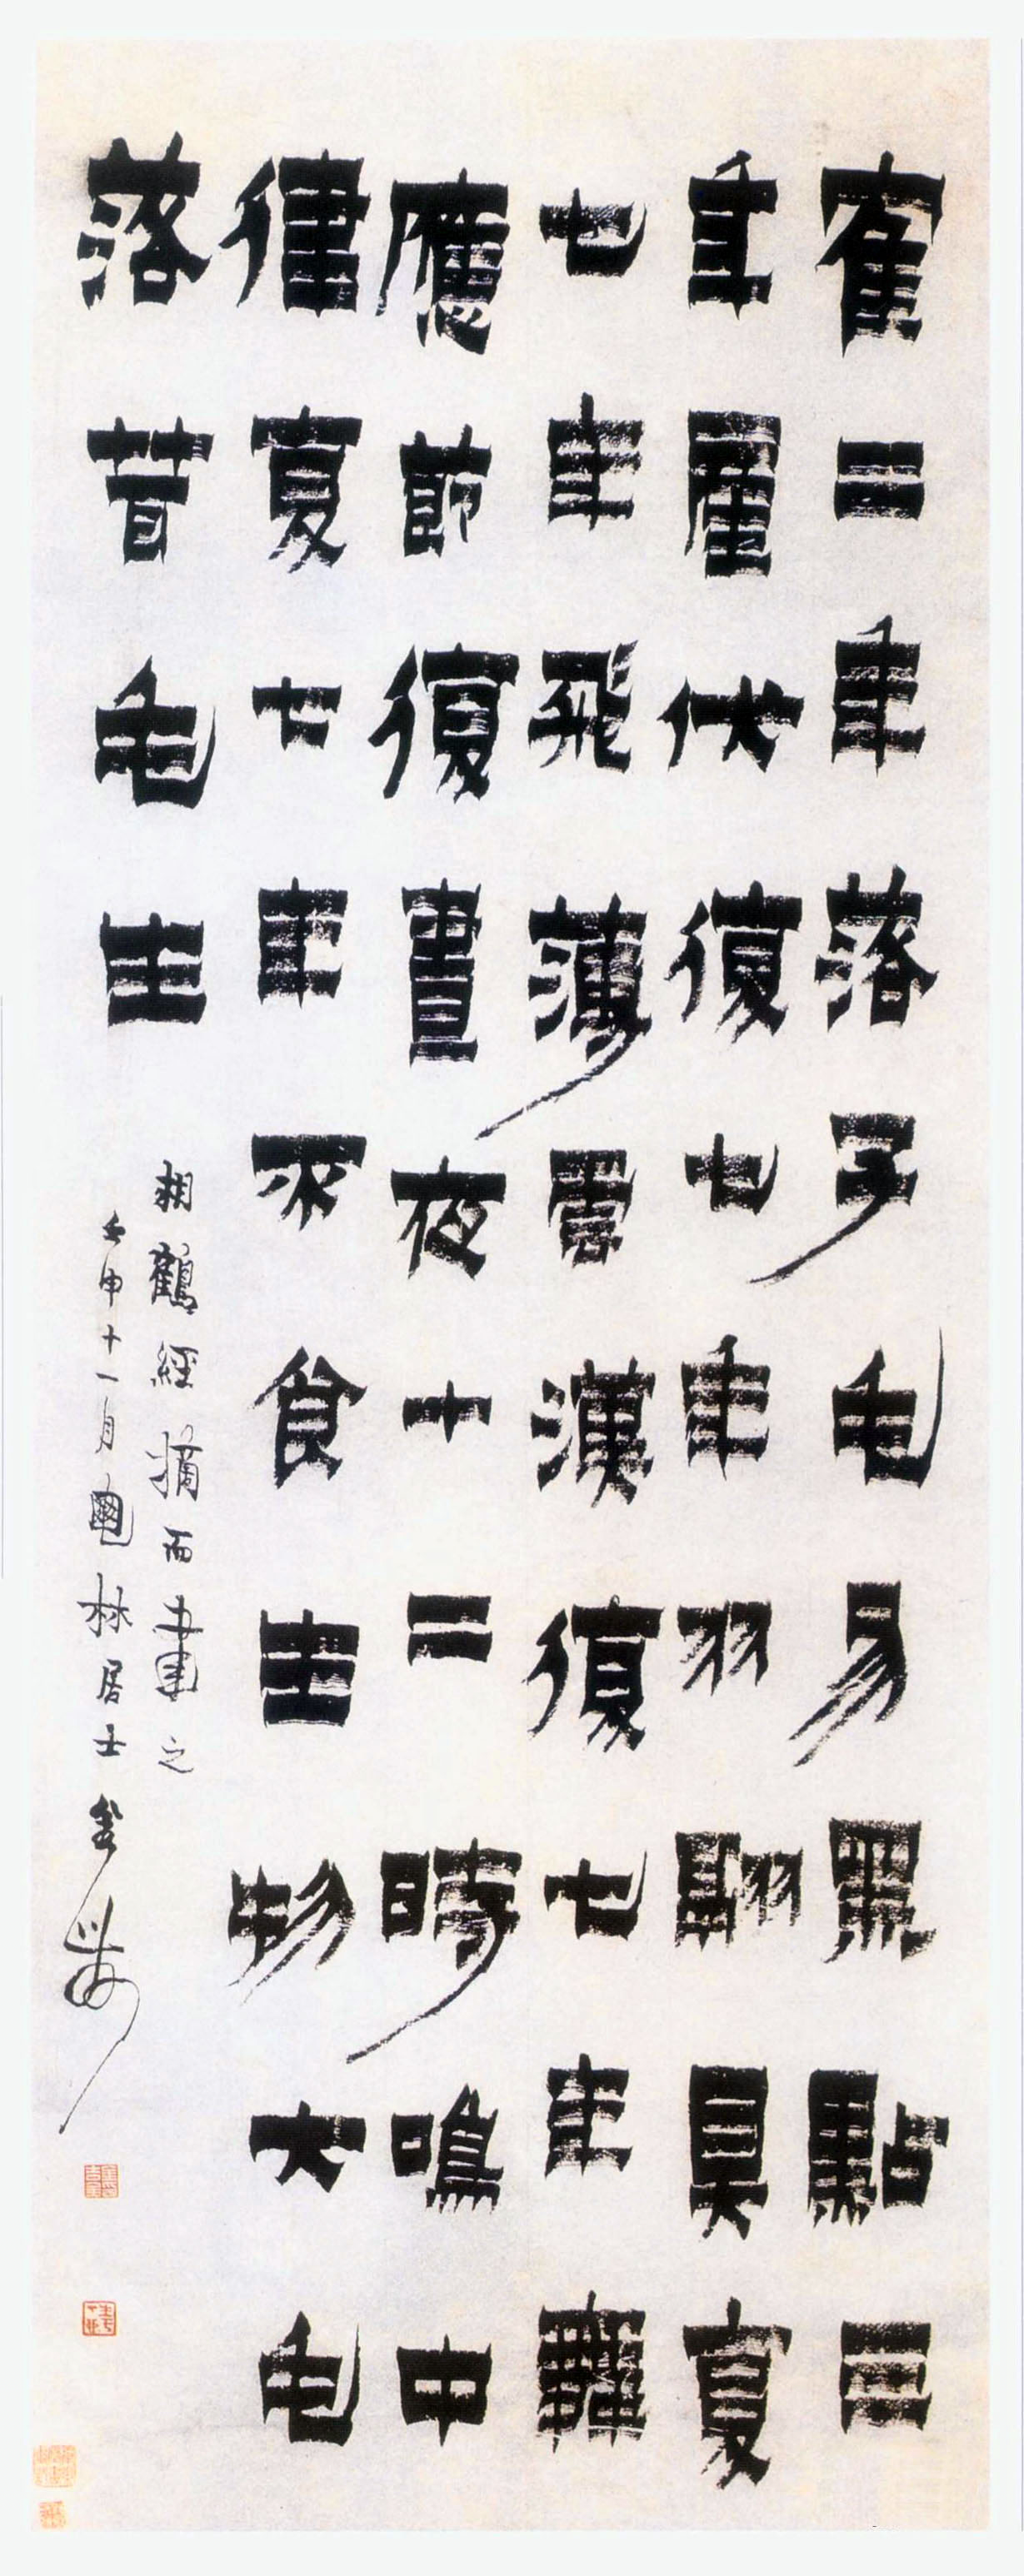 寉二年落子毛易黑點三
年產伏復七年羽翮具复
七年飛薄雲漢復七年舞
應節復晝夜十二時鳴中
律复七年不食生物大毛
落茸毛生
相鶴經摘而書之
壬申十一月龜林居士